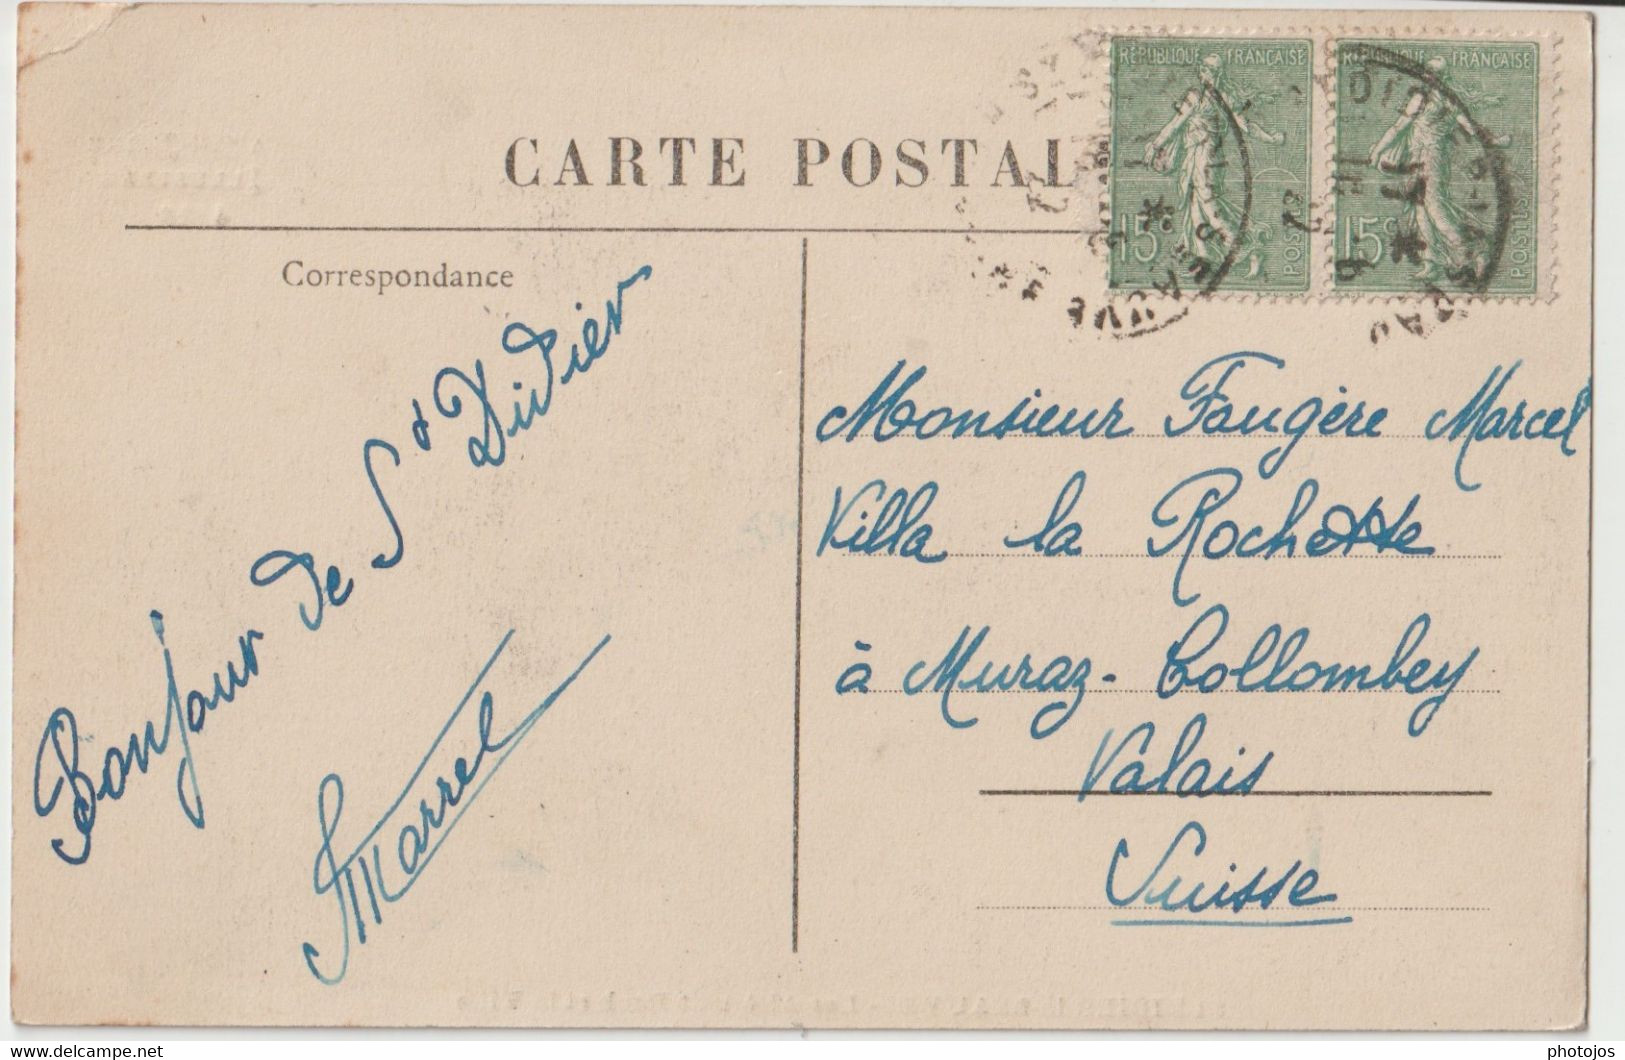 CARTE POSTALE
RÉPUBLIQUE FRANÇAISE
15c
POSTES
RÉPUBLIQUE FRANÇAISE
15c
POSTES
Correspondance
Bonjour de St Didier
Marcel
Monsieur Faugère Marcel
Villa la Rochette
à Muraz-Collombey
Valais
Suisse
photojos
delcampe.net